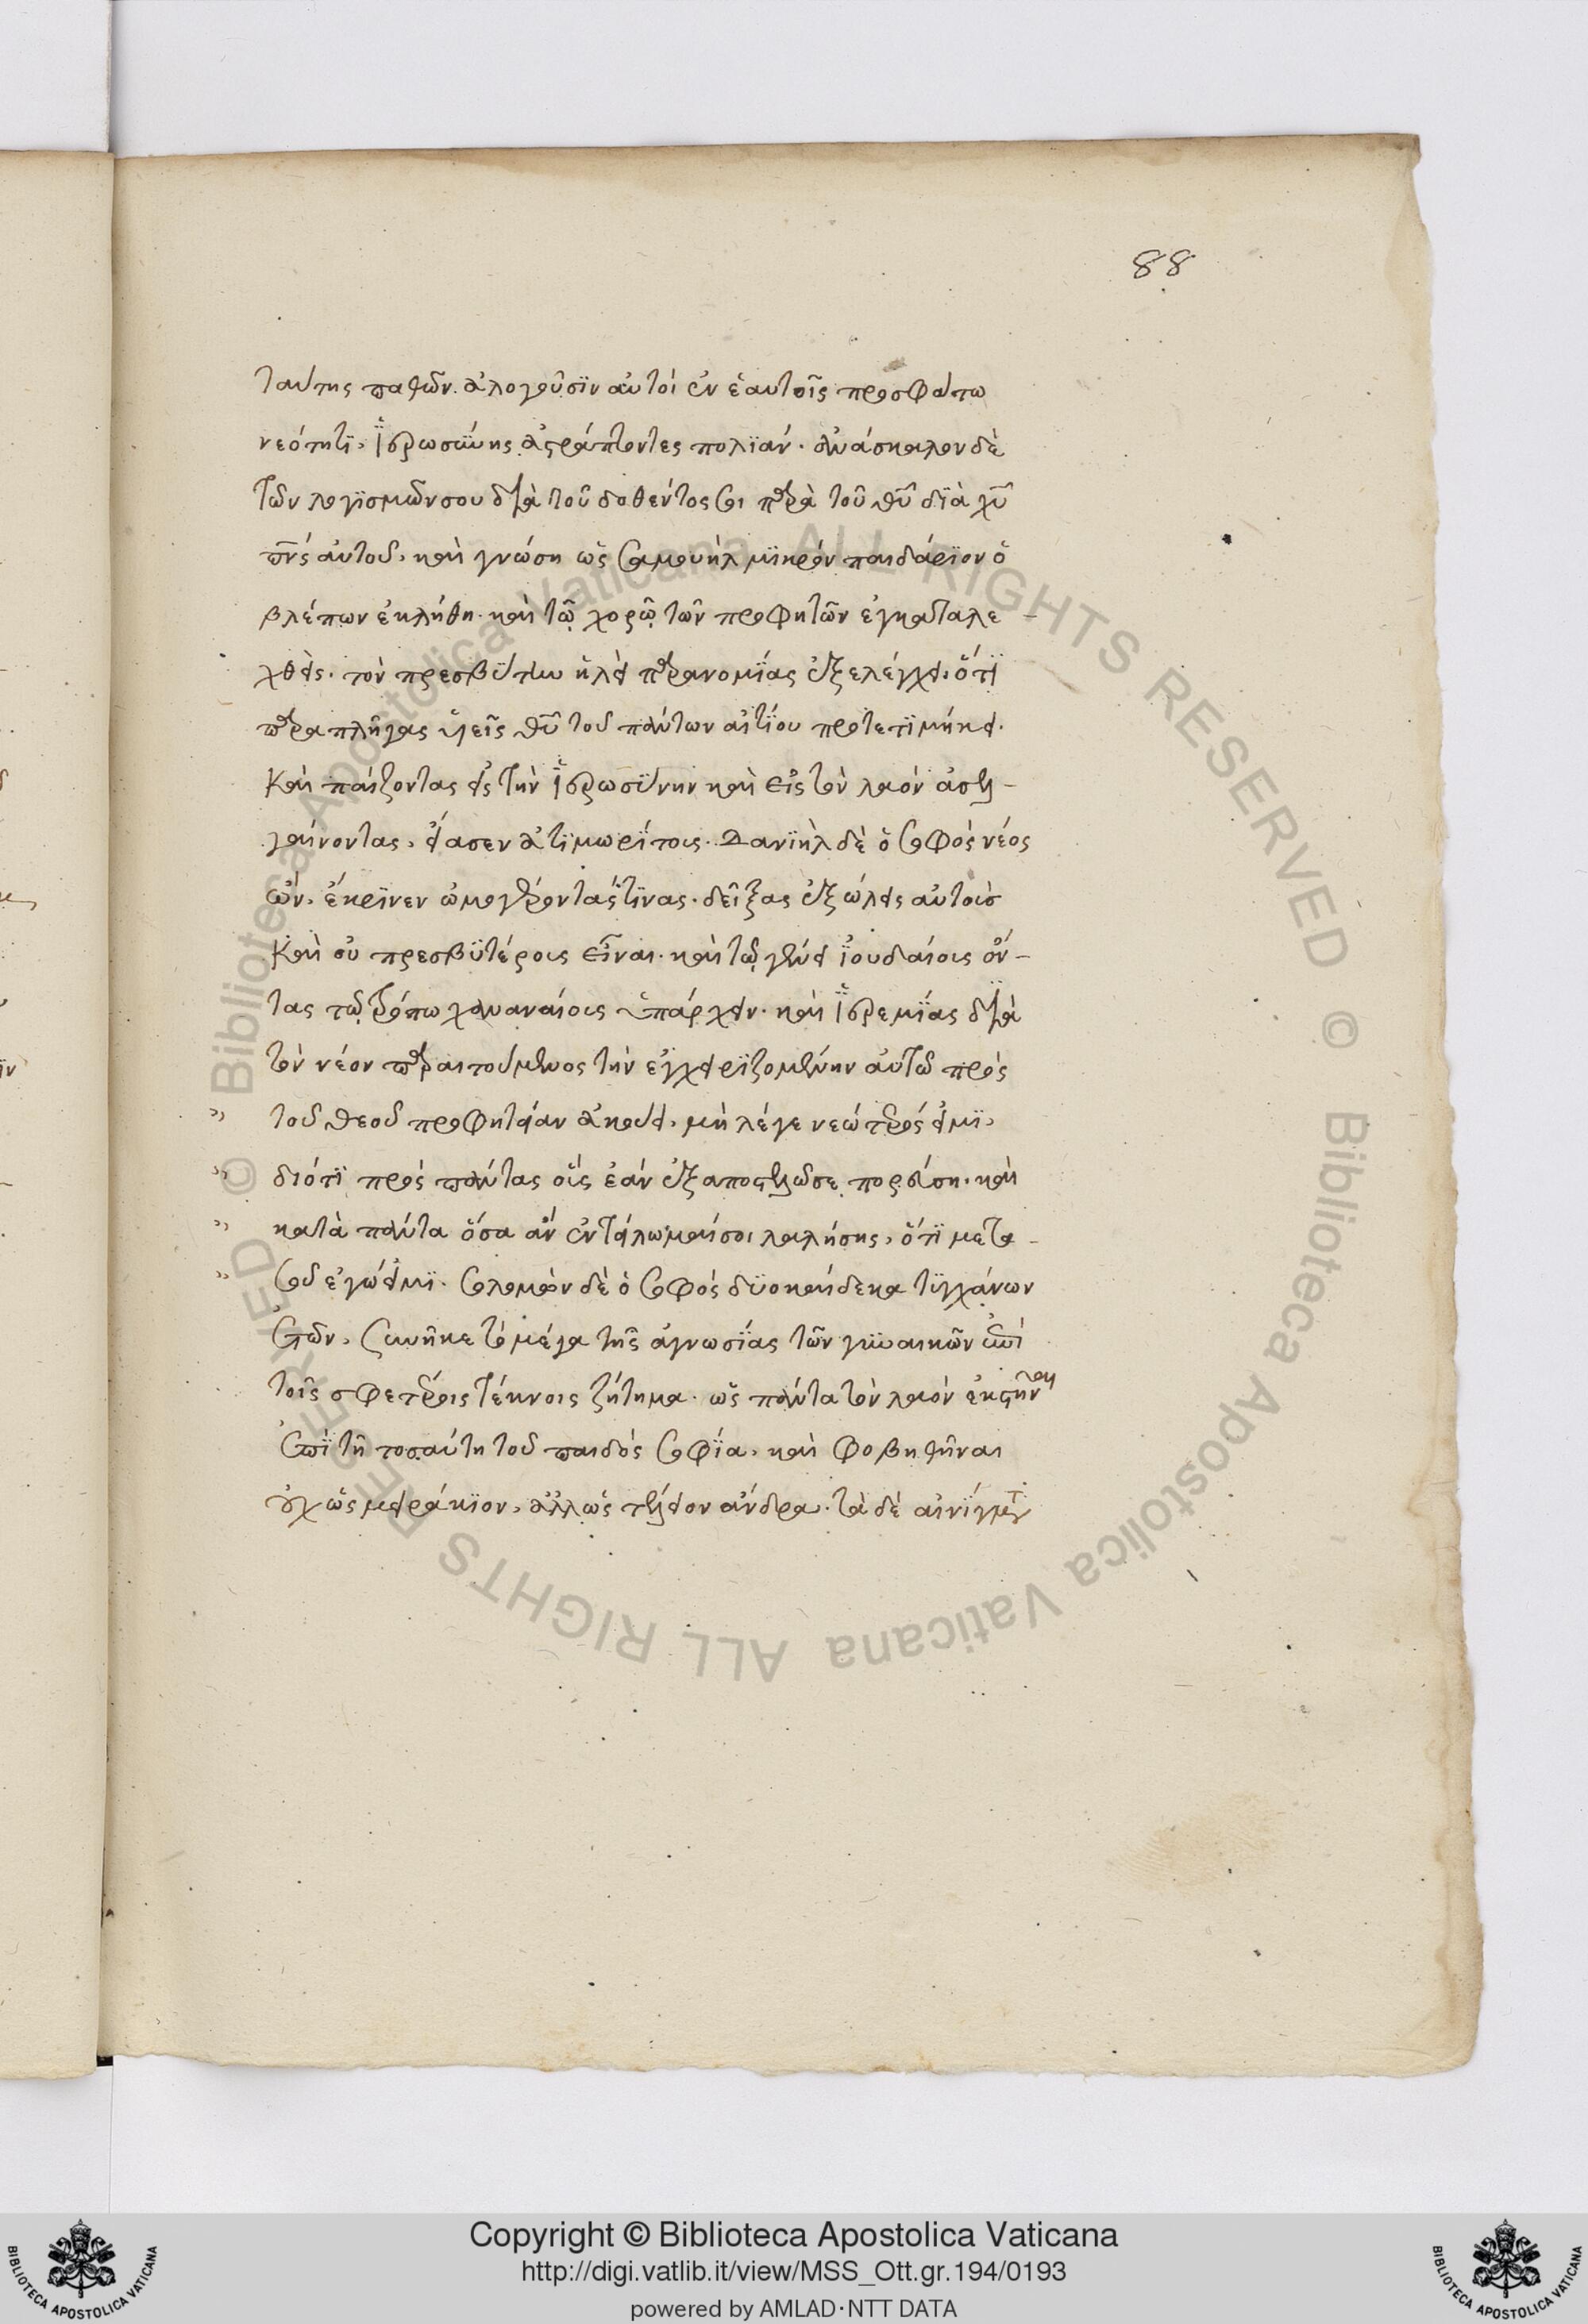 88
ταύτης παθῶν. ἀλογοῦσϊν αὐτοὶ ἐν ἑαυτοῖς προσφάτω
νεότητϊ, ἱερωσύνης ἀστράπτοντες πολϊάν. ἀνάσκαλον δὲ
τῶν λογϊσμῶν σου διὰ τοῦ δοθέντος σοι παρὰ τοῦ θῦ δϊὰ χῦ
πνς αὐτοῦ, καὶ γνώση ὡς σαμουὴλ μϊκρὸν παιδάρϊον ὁ
βλέπων ἐκλήθη. καὶ τῷ χορῷ τῶν προφητῶν ἐγκαταλε-
χθεὶς. τὸν πρεσβύτην ἡλεὶ παρανομίας ἐξελέγχει, ὅτϊ
παραπλῆγας ὑιεῖς θῦ τοῦ πάντων αἰτϊου προτετϊμήκει.
Καὶ παίζοντας εἰς τὴν ἱερωσύνην καὶ εἰς τὸν λαὸν ἀσελ-
γαίνοντας, εἴασεν ἀτϊμωρίτους. Δανϊὴλ δὲ ὁ σοφὸς νέος
ὢν, ἔκρϊνεν ὠμογέροντάς τϊνας. δεῖξας ἐξώλεις αὐτοὺσ
Καὶ οὐ πρεσβϋτέρους εἶναι. καὶ τῷ γένει ἰουδαίους ὄν-
τας τῷ τρόπω χαναναίους ὑπάρχειν. καὶ ἱερεμίας διὰ
τὸν νέον παραιτούμενος τὴν ἐγχειρϊζομένην αὐτῶ πρὸς
" τοῦ θεοῦ προφητείαν ἀκούει, μὴ λέγε νεώτερός εἰμϊ,
" διότϊ πρὸς πάντας οὓς ἐὰν ἐξαποστελῶ σε πορεύση. καὶ
" κατὰ πάντα ὅσα ἂν ἐντείλωμαί σοι λαλήσης, ὅτϊ μετα-
" σοῦ ἐγώ εἰμϊ. σολομὼν δὲ ὁ σοφὸς δϋοκαίδεκα τϋγχάνων
ἐτῶν, συνῆκε τὸ μέγα τῆς ἀγνωσϊας τῶν γϋναικῶν ἐπὶ
τοῖς σφετέροις τέκνοις ζήτημα. ὡς πάντα τὸν λαὸν ἐκστῆναι
ἐπὶ τῆ τοσαύτη τοῦ παιδὸς σοφία, καὶ φοβηθῆναι
οὐχ ὡς μειράκϊον, ἀλλ ὡς τέλειον ἄνδρα. τὰ δὲ αἰνίγματ
Copyright © Biblioteca Apostolica Vaticana
http://digi.vatlib.it/view/MSS_Ott.gr.194/0193
powered by AMLAD·NTT DATA